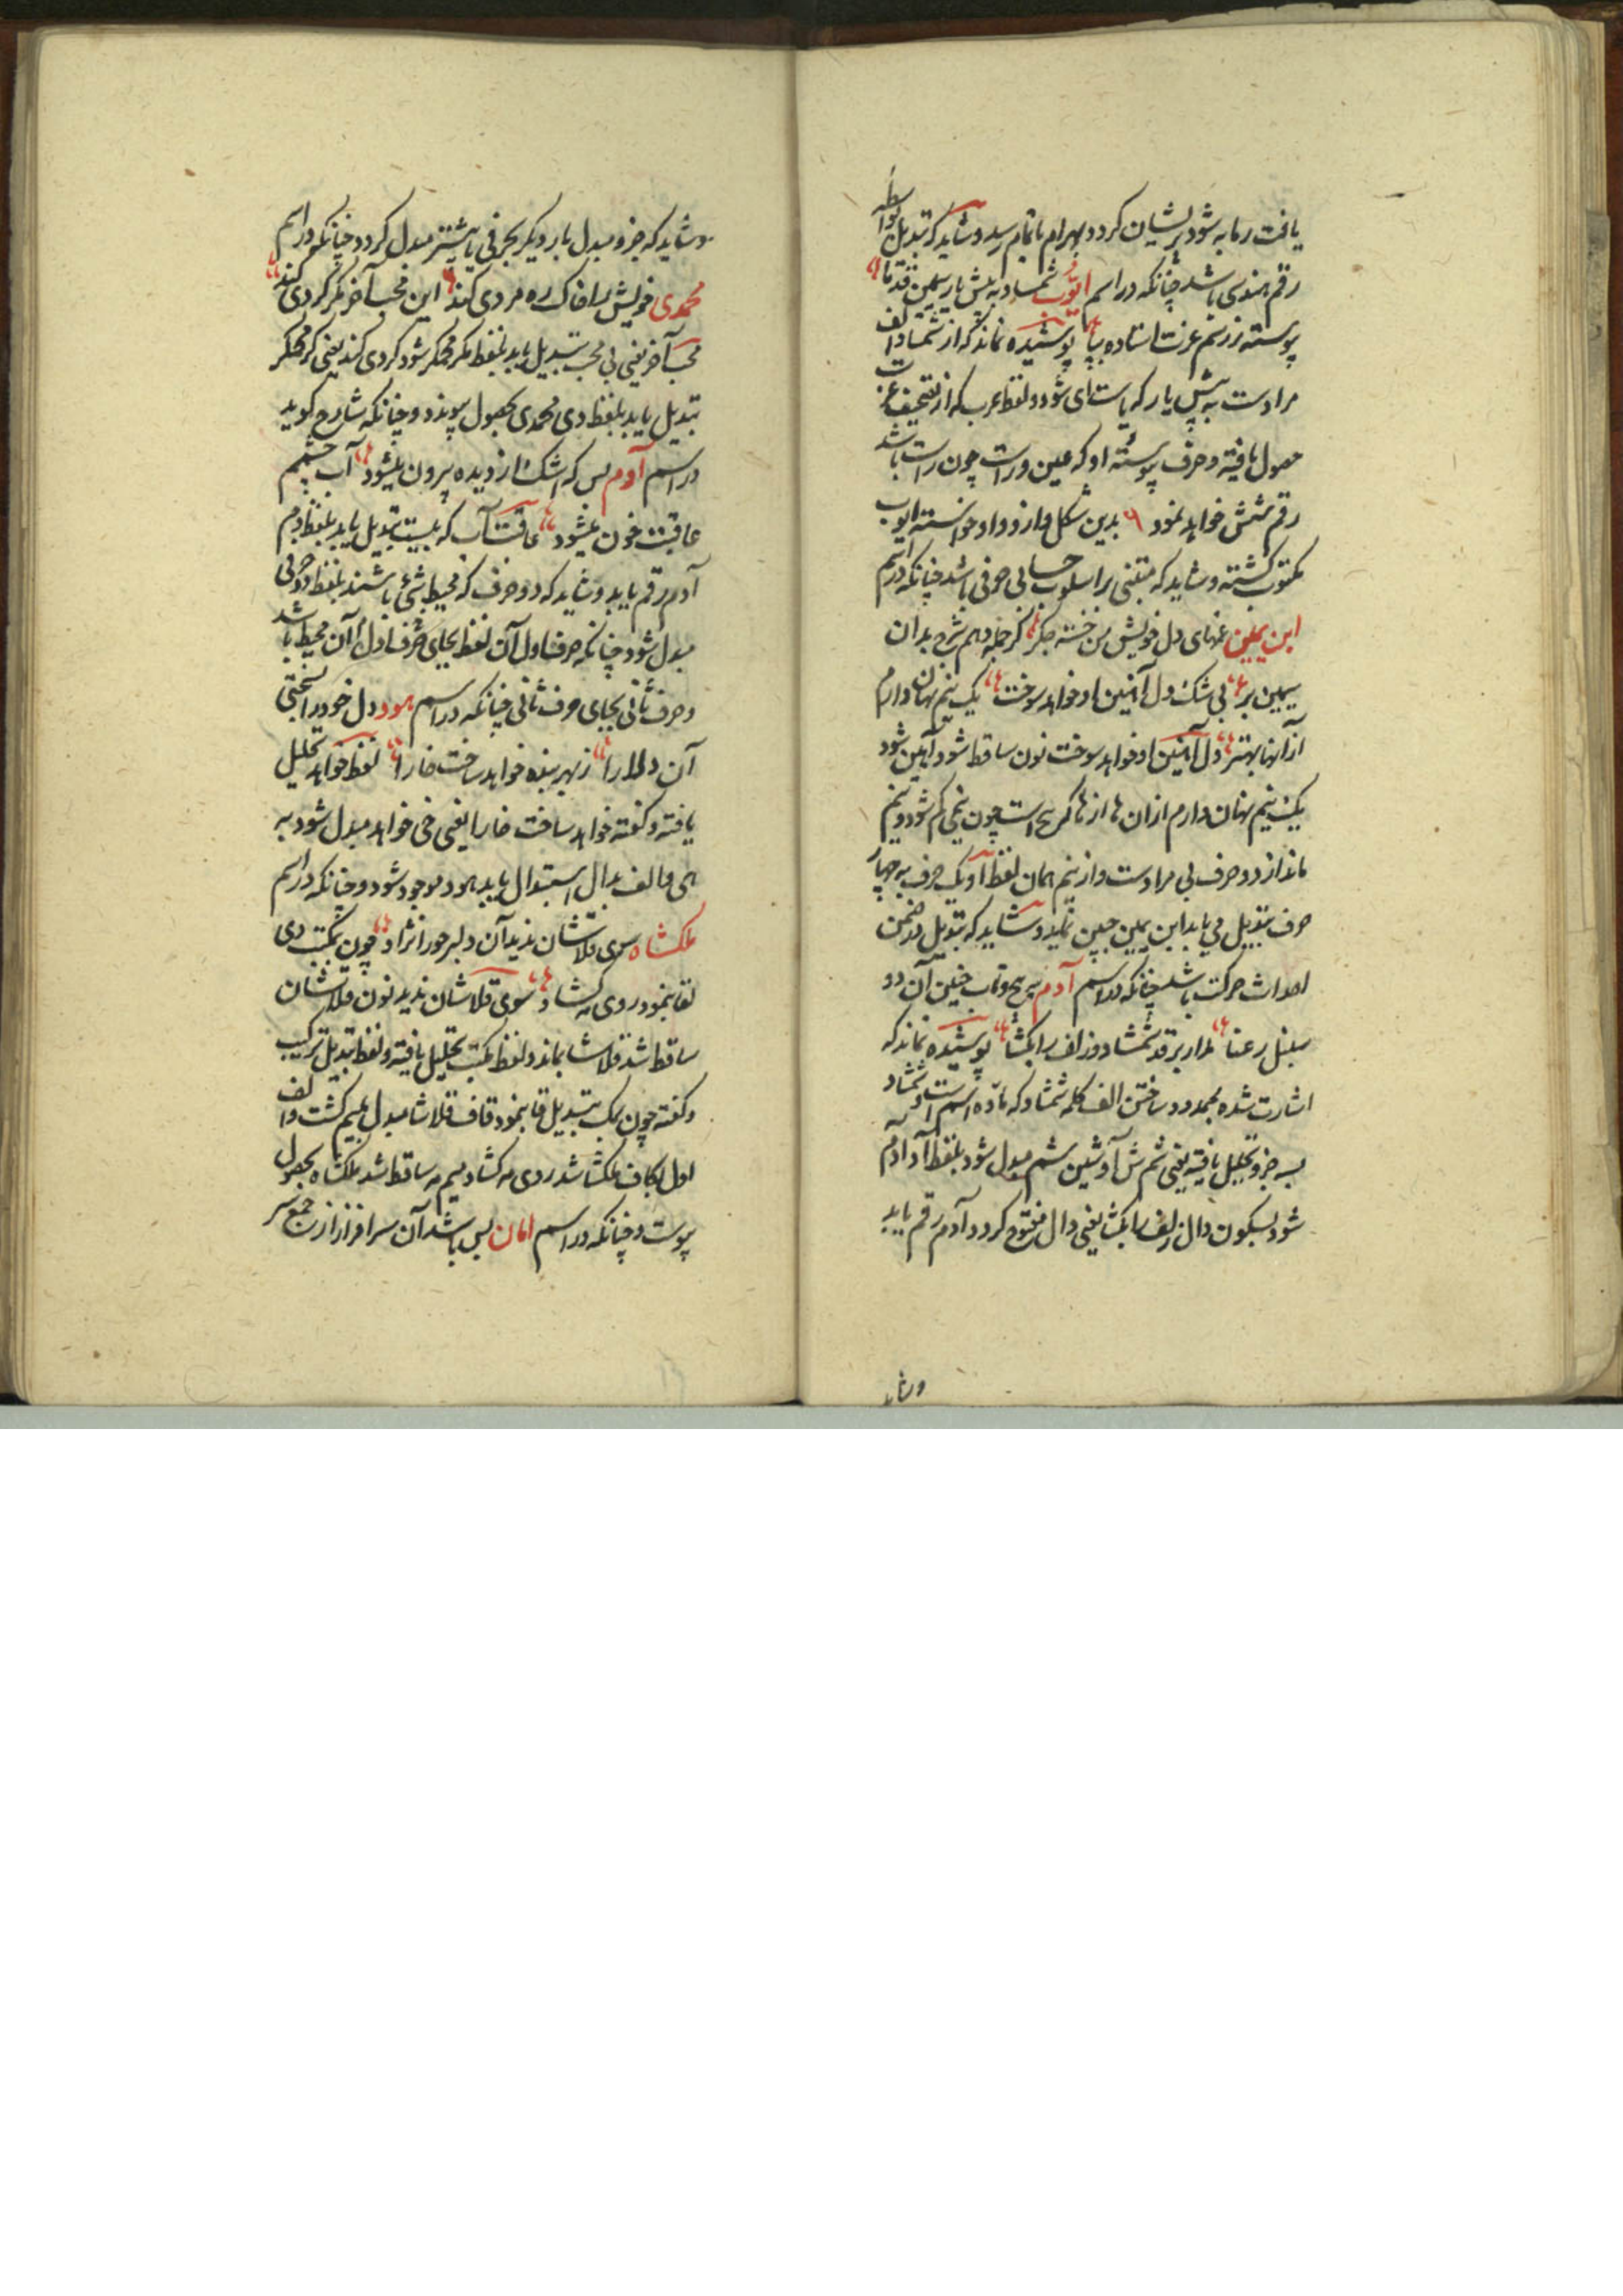 یافت رما به شود پریشان کردد بهرام باتمام رسد و شاید که تبدیل بواسطه
رقم هندسی باشد چنانکه در اسم ایوب شمشاد به پیش یار سیمین قد ما
پوسته ز رسم عزت استاده بپا پوشیده نماند که از شمشاد الف
مرادست به پیش یار که یاست ای شود و لفظ عرب که از تصحیف عزت
حصول یافته و حرف پیوسته او که عین و راست چون راست باشد
رقم شش خواهد نمود ۶ بدین شکل و ازو واو خواسته ایوب
مکتوب کشته و شاید که مبتنی بر اسلوب حسابی حرفی باشد چنانکه در اسم
ابن یمین غمهای دل خویش من خسته جکر کر جمله دهم شرح بدان
سیمین بر بی شک دل آهنین او خواهد سوخت یک نیم نهان دارم
از آنها بهتر دل آهنین او خواهد سوخت نون ساقط شود آهین شود
یک نیم نهان دارم از ان ها از ها که پنج است چون نیمی کم شود دو نیم
ماند از دو حرف بی مرادست و از نیم همان لفظ او یک حرف به چهار
حرف تبدیل می یابد ابن یمین جبین نماید و شاید که تبدیل در ضمن
احداث حرکت باشد چنانکه در اسم آدم پر پیچ و تاب چنین آن دو
سنبل رعنا مدار بر قد شمشاد و زلف را بکشا پوشیده نماند که
اشارت شده بممدود ساختن الف کلمه شمشاد که ماده اسم است و شمشاد
بسه جزو تحلیل یافته یعنی شم ش آد شین شم مبدل شود بلفظ آد آدم
شود بسکون دال زلف را بکشا یعنی دال مفتوح کردد آدم رقم یابد
و شاید
و شاید که جزو مبدل بار دیکر بحرفی یا بیشتر مبدل کردد چنانکه در اسم
محمدی خویش را خاک ره مردی کند این محب آخر مکر کردی کند
محب آخر یعنی بی محب تبدیل یابد بلفظ مکر محمکر شود کردی کند یعنی کر محمکر
تبدیل یابد بلفظ دی محمدی بحصول پیوندد و چنانکه شارح کوید
در اسم آدم بس که اشک از دیده بیرون میشود آب چشمم
عاقبت خون میشود عاقبت آب که بیست تبدیل یابد بلفظ دم
آدم رقم یابد و شاید که دو حرف که محیط شئ باشند بلفظ دو حرفی
مبدل شود چنانکه حرف اول آن لفظ بجای حرف اول آن محیط باشد
و حرف ثانی بجای حرف ثانی چنانکه در اسم هود دل خود را بسختی
آن دلارا ز بهر بنده خواهد ساخت خارا لفظ خواهد تحلیل
یافته و کفته خواهد ساخت خارا یعنی خی خواهد مبدل شود به
هی و الف بدال استبدال یابد هود موجود شود و چنانکه در اسم
ملکشاه سوی قلاشان ندید آن دلبر حورا نژاد چون بمکتب دی
لقا بنمود روی مه کشاد سوی قلاشان ندید نون قلاشان
ساقط شد قلاشا بماند و لفظ مکتب تحلیل یافته و لفظ تبدیل ترکیب
و کفته چون بمک تبدیل قا بنمود قاف قلاشا مبدل بمیم کشت و الف
اول بکاف ملکشا شد روی مه کشاد میم مه ساقط شد ملکشاه بحصول
پیوست و چنانکه در اسم امان بس باشد آن سرافراز از جمع سر